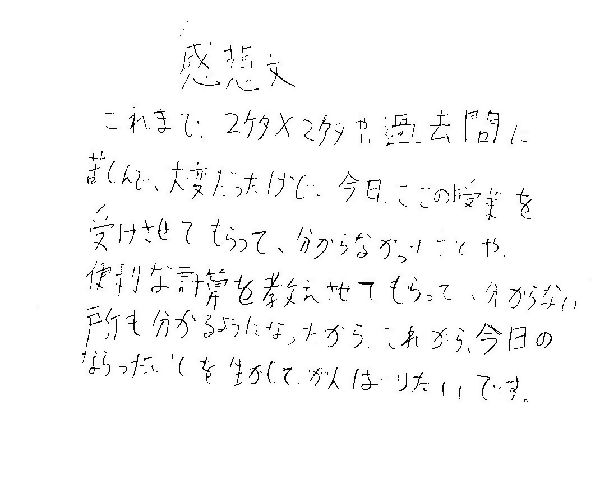 感想文
これまで、2ケタ×2ケタや、過去問に
苦しんで、大変だったけど、今日、ここの授業を
受けさせてもらって、分からなかったことや、
便利な計算を教えさせてもらって、分からない
所も分かるようになったから、これから、今日の
ならったことを生かして、がんばりたいです。